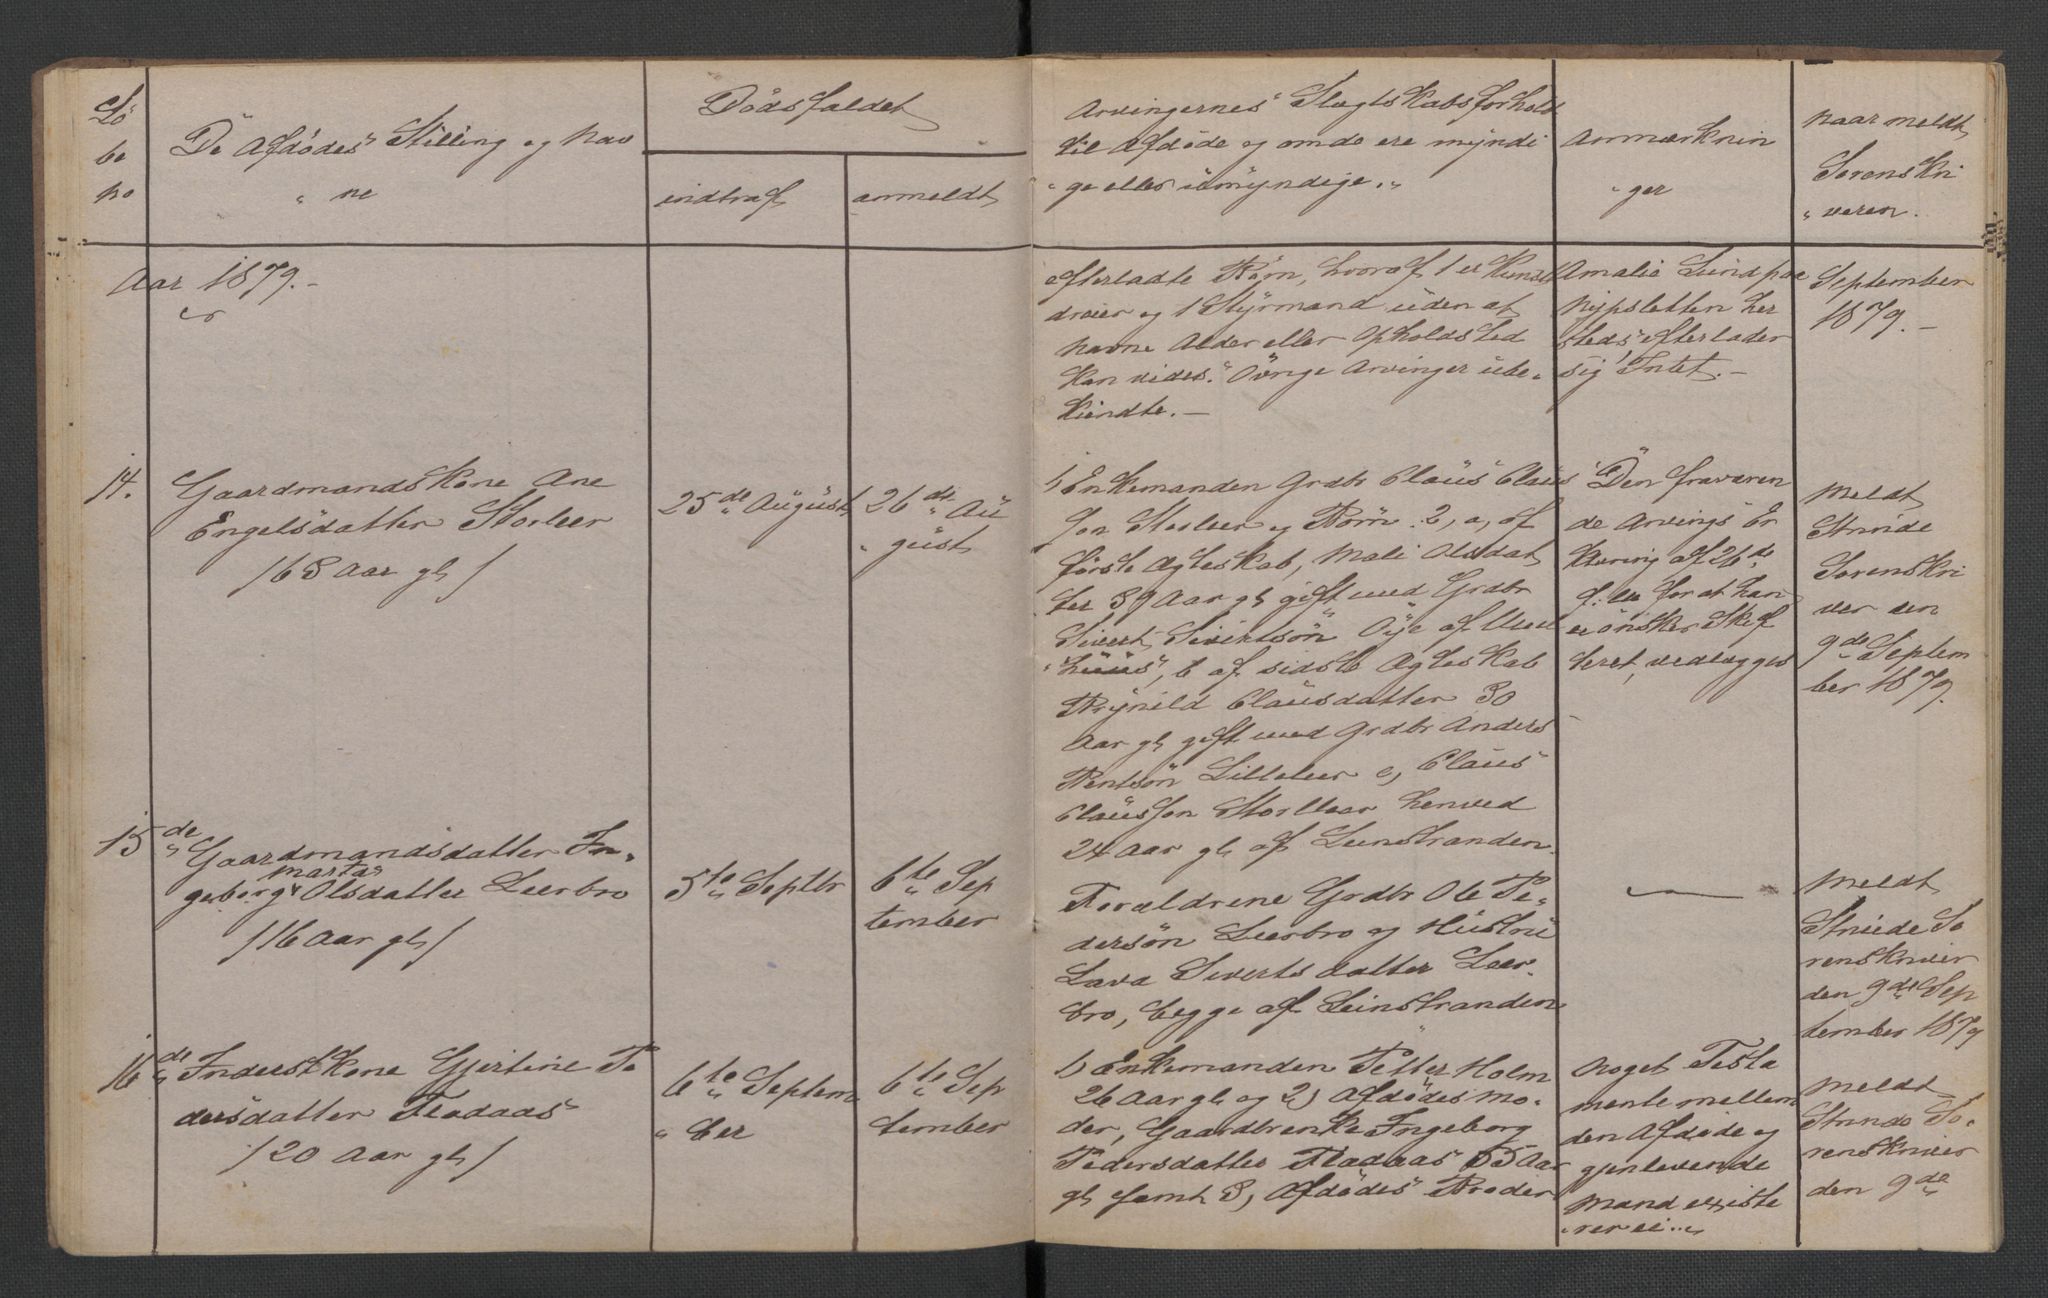 Lö
be
no
De Afdödes Stilling og Nav
ne
Dödsfaldet
indtraf
anmeldt
Arvingernes Slægtskabsforhold
til Afdöde og om de ere myndi
ge eller umyndige.
Anmærknin
ger
Naar meldt
Sorenskri
veren.
Aar 1879.-
efterladte Börn, hvoraf 1 er Kunst
dreier og 1 Styrmand uden at
Navne Alder eller Opholdsted
kan vides. Övrige Arvinger ube-
kiendte.-
Amalie Lund paa
Nypsletten her
steds efterlader
sig Intet.-
September
1879.-
14.
Gaardmandskone Ane
Engelsdatter Storleer
/68 Aar gl/
25de August
26de Au
gust
1) Enkemanden Grdbr Claus Claus
son Storleer og Börn. 2, a, af
förste Ægteskab, Mali Olsdat
ter 39 Aar gl gift med Grdbr
Sivert Sivertsön Öye af
huus, b af sidste Ægteskab
Brynild Clausdatter 30
Aar gl gift med Grdbr Anders
Bentsön Lilleleer c, Claus
Clausson Storleer henved
24 Aar gl af Leinstranden.
Den fraværen
de Arvings Er
klæring af 26de
f: m for at han
ei önsker Skif
teret, vedlægges
Meldt
Strinde
Sorenskri
ver den
9de Septem
ber 1879.
15de
Gaardmandsdatter In-
geborg Marta Olsdatter Leerbro
/16 Aar gl/
5te Septbr
6te Sep
tember
Forældrene Grdbr Ole Pe-
dersön Leerbro og Hustru
Lava Sivertsdatter Leer-
bro, begge af Leinstranden
Meldt
Strinde So
renskriver
den 9de Sep
tember 1879
16de
Inderstkone Gjertine Pe
dersdatter Fladaas
/20 Aar gl/
6te Septem
ber
6te Sep
tember
1) Enkemanden Petter Holm
26 Aar gl og 2) Afdödes mo-
der, Gaardbrenke Ingeborg
Pedersdatter Fladaas 55 Aar
gl samt 3, Afdödes Broder
Noget Testa
mente mellem
den Afdöde og
gjenlevende
Mand existe
rer ei.
Meldt
Strinde So-
renskriver
den 9de